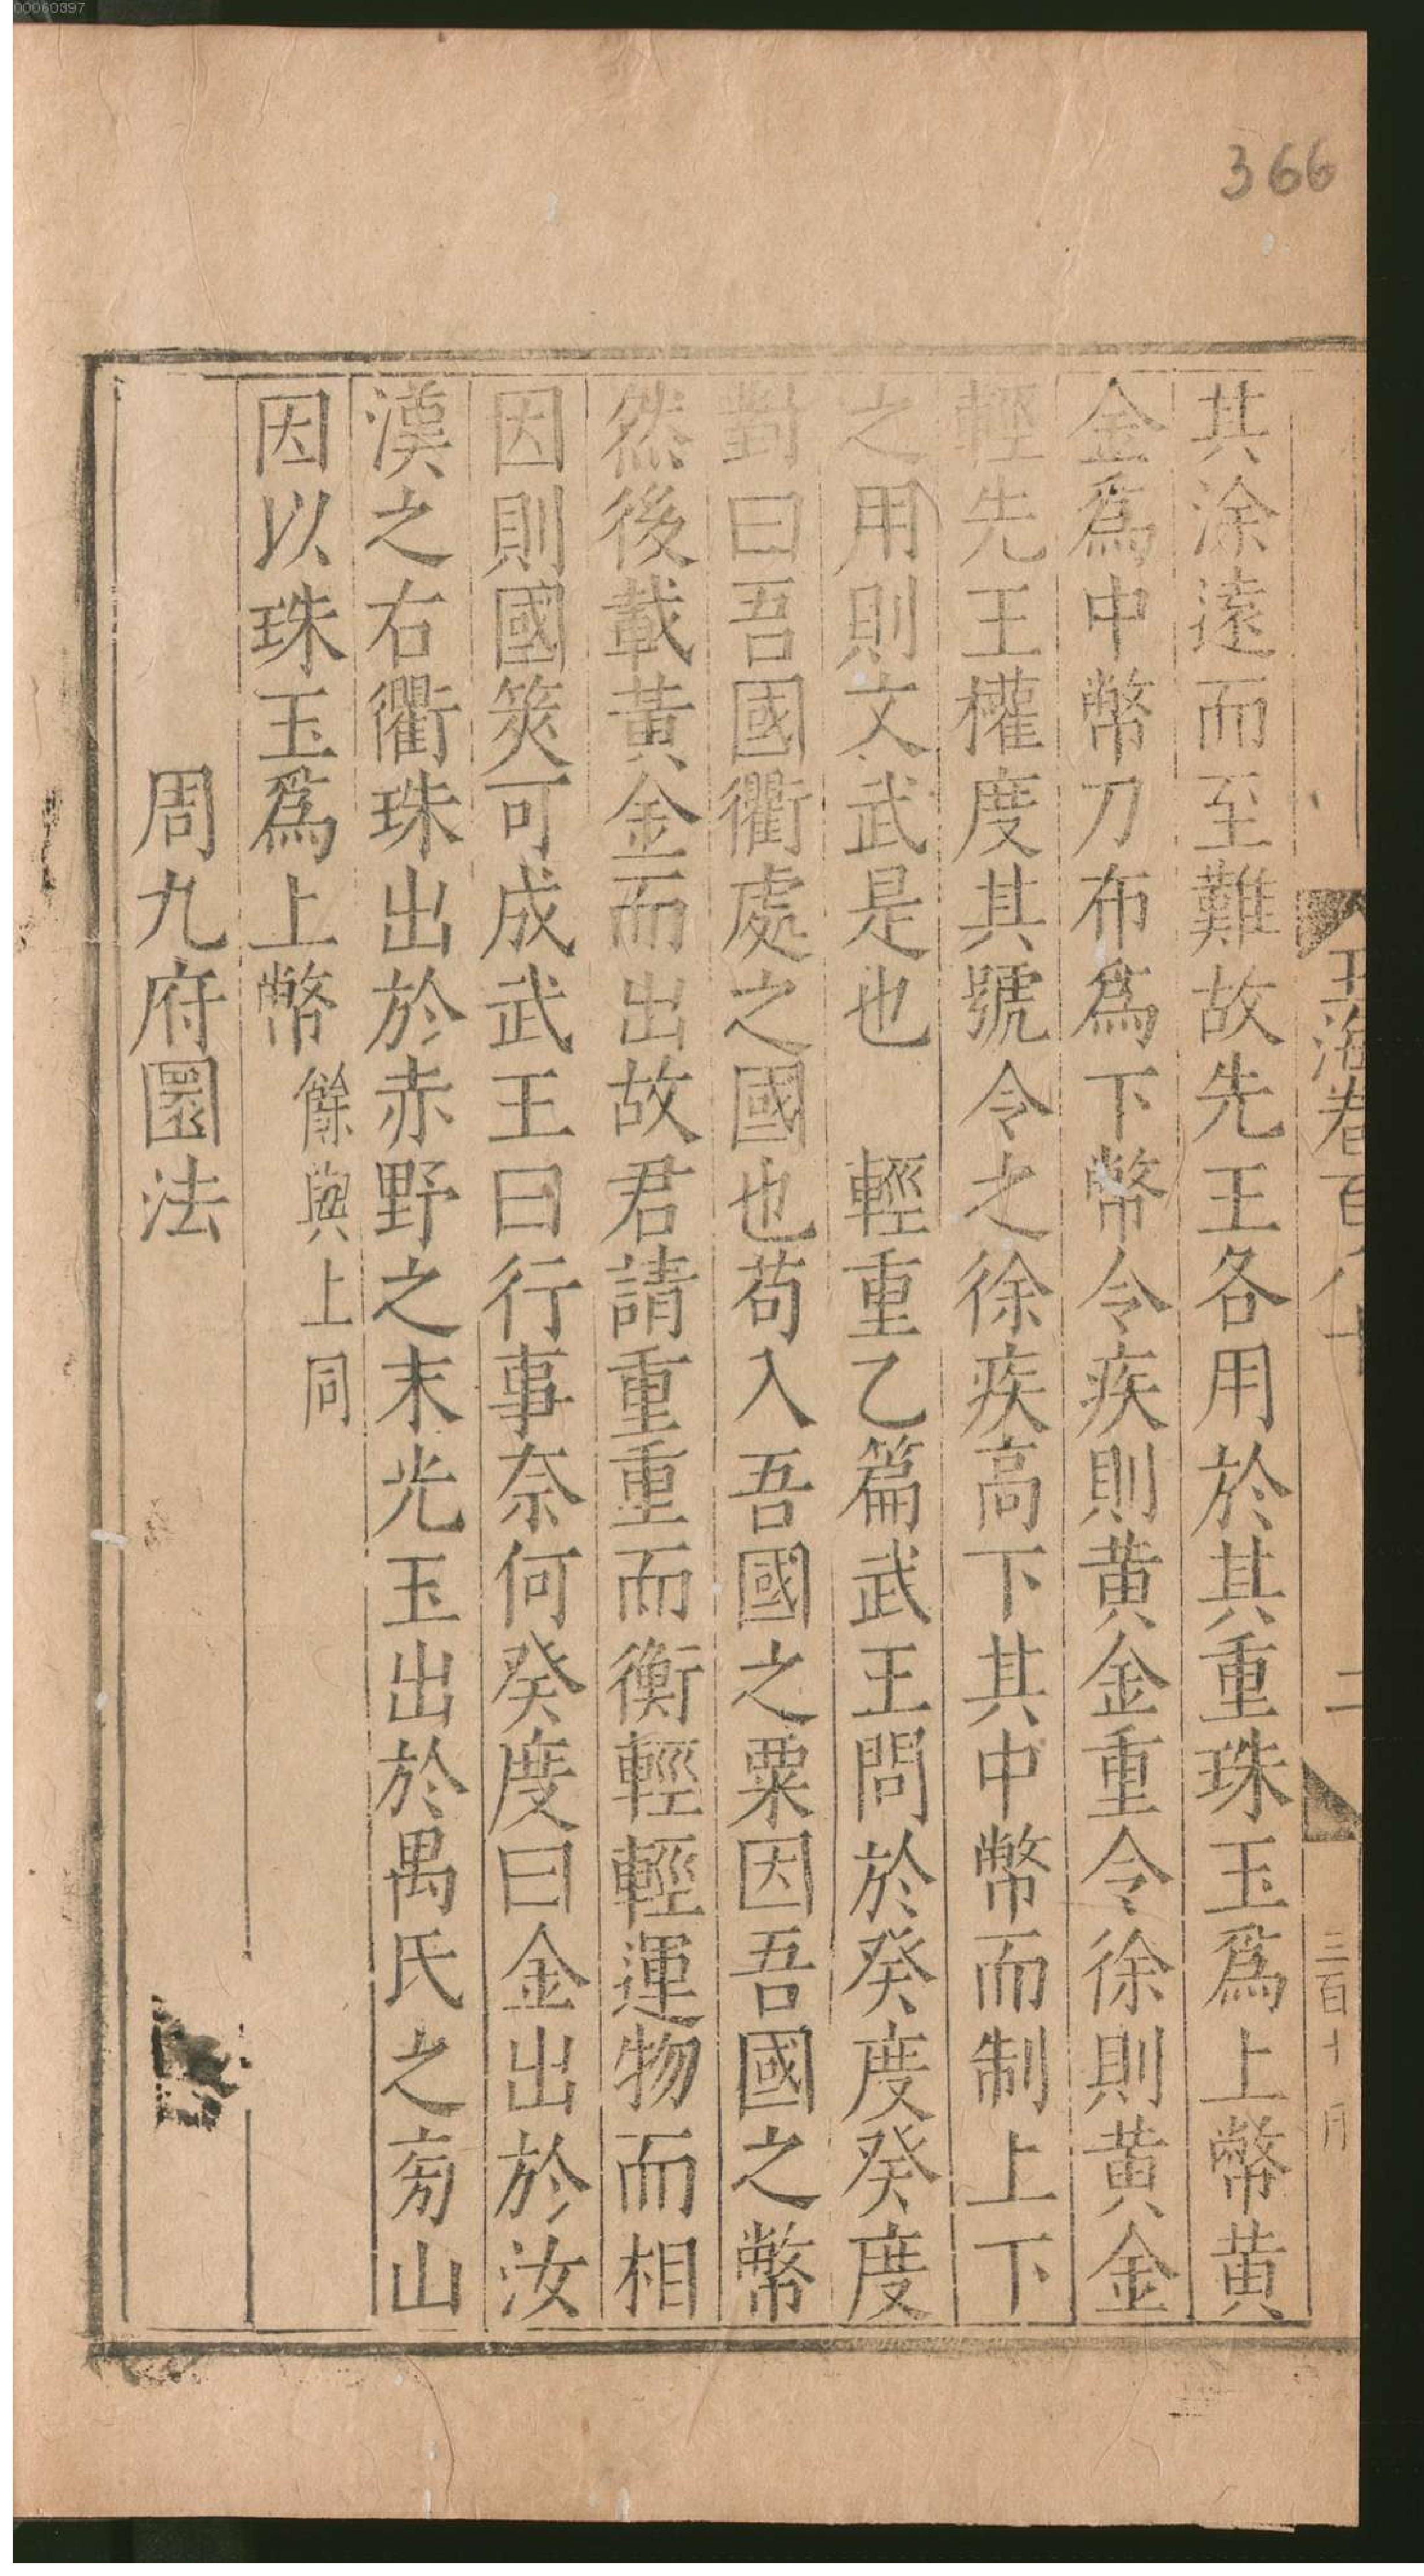 00060397
366
其涂遠而至難故先王各用於其重珠玉爲上幣黄
金爲中幣刀布爲下幣令疾則黄金重令徐則黄金
輕先王權度其號令之徐疾高下其中幣而制上下
之用則文武是也　輕重乙篇武王問於癸度癸度
對曰吾國衢處之國也苟入吾國之粟因吾國之幣
然後載黄金而出故君請重重而衡輕輕運物而相
因則國筴可成武王曰行事奈何癸度曰金出於汝
漢之右衢珠出於赤野之末光玉出於禺氏之旁山
因以珠玉爲上幣餘與上同
周九府圜法
玉海卷百八十
二
三百十月